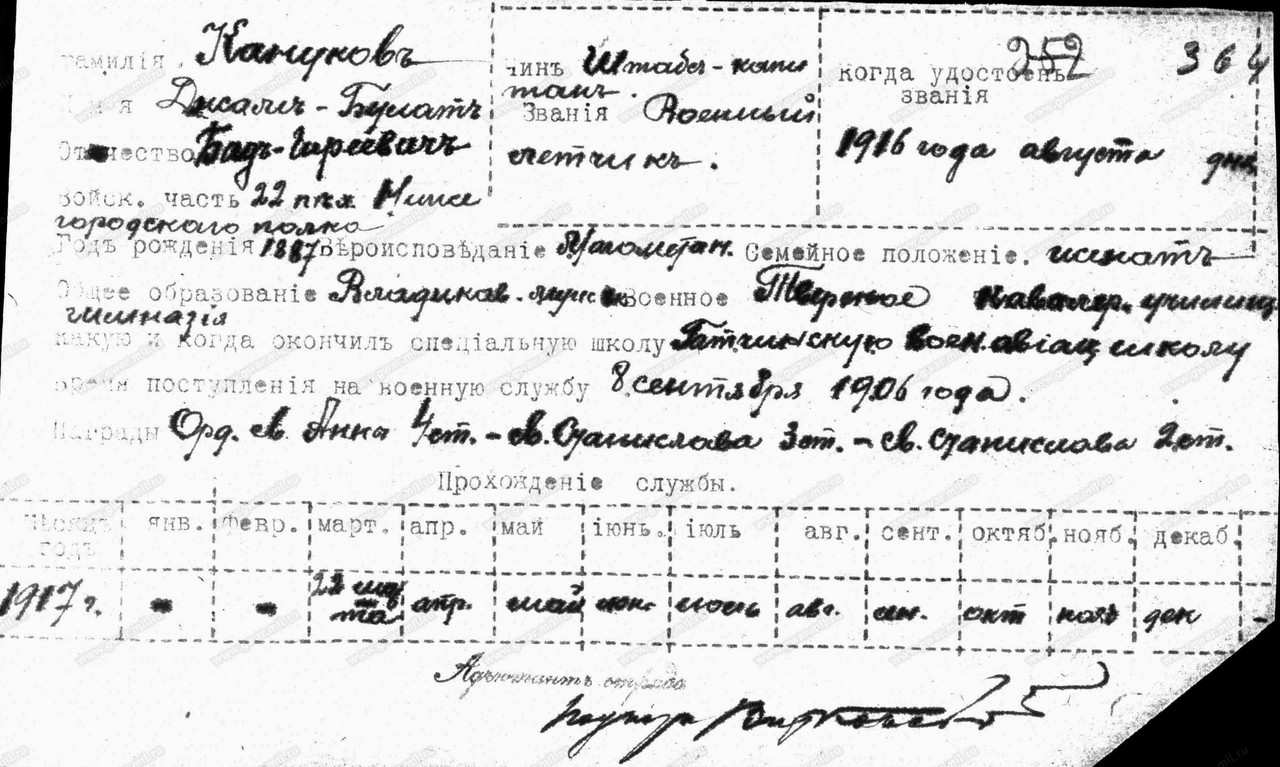 Фамилія. Кануковъ
Имя Джамъ-Булатъ
Отчество Бадъ-Гиреевичъ
чинъ Штабсъ-капи
танъ.
Званія Военный
летчикъ.
252 364
когда удостоенъ
званія
1916 года августа дня
Войск. часть 22 пѣх Ниже
городскаго полка
Годъ рожденія 1887 Вѣроисповѣданіе Магометан. Семейное положеніе. женатъ
Общее образованіе Владикав. Военное Тверское кавалер. училищ
гимназія
какую и когда окончилъ спеціальную школу Гатчинскую воен. авіац школу
Время поступленія на военную службу 8 сентября 1906 года.
Награды Орд. св. Анна 4 ст. - св. Станислава 3 ст. - св. Станислова 2 ст.
Прохожденіе службы.
Мѣсяцъ янв. Февр. март. апр. май іюнь. іюль авг. сент. октяб. нояб. декаб.
годъ
1917 г. - - 22 мар
та апр. май июн. июль авг. сен. окт нояб дек -
Адъютантъ отряда